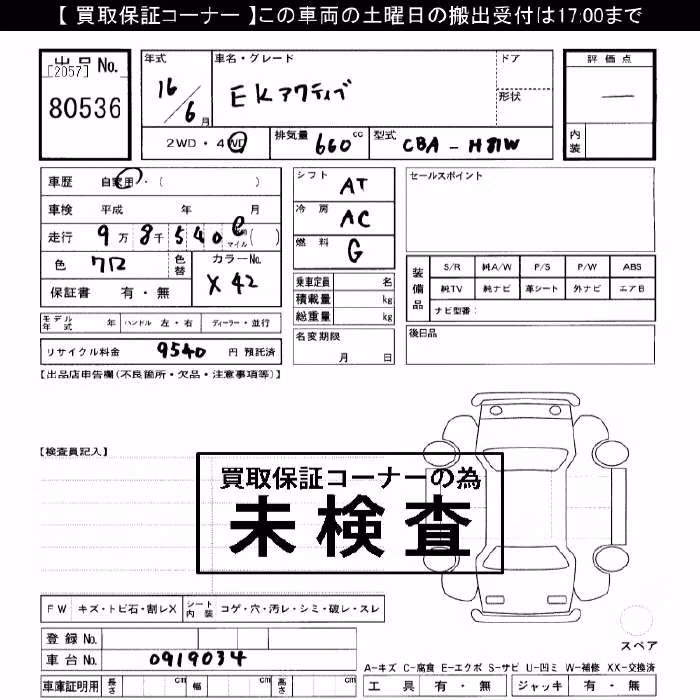 【 買取保証コーナー 】この車両の土曜日の搬出受付は17:00まで
出品 No.
[2057]
80536
年式
16/6月
車名・グレード
EKアクティブ
ドア
形状
評価点
—
内装
2WD・4WD
排気量 660 cc
型式 CBA - H81W
車歴 自家用・( )
車検 平成 年 月
走行 9万8千540 マイル( )
色 クロ
色替
カラーNo.
X42
保証書 有・無
シフト AT
冷房 AC
燃料 G
乗車定員 名
積載量 kg
総重量 kg
セールスポイント
装備品
S/R 純A/W P/S P/W ABS
純TV 純ナビ 革シート 外ナビ エアB
ナビ型番:
モデル年式 年 ハンドル 左・右 ディーラー・並行
名変期限
月 日
後日品
リサイクル料金 9540 円 預託済
【出品店申告欄(不良箇所・欠品・注意事項等)】
【検査員記入】
買取保証コーナーの為
未検査
FW キズ・トビ石・割レX シート内装 コゲ・穴・汚レ・シミ・破レ・スレ
登録 No.
車台 No. 0919034
車庫証明用 長さ cm 幅 cm 高さ cm
スペア
A-キズ C-腐食 E-エクボ S-サビ U-凹ミ W-補修 XX-交換済
工具 有・無 ジャッキ 有・無